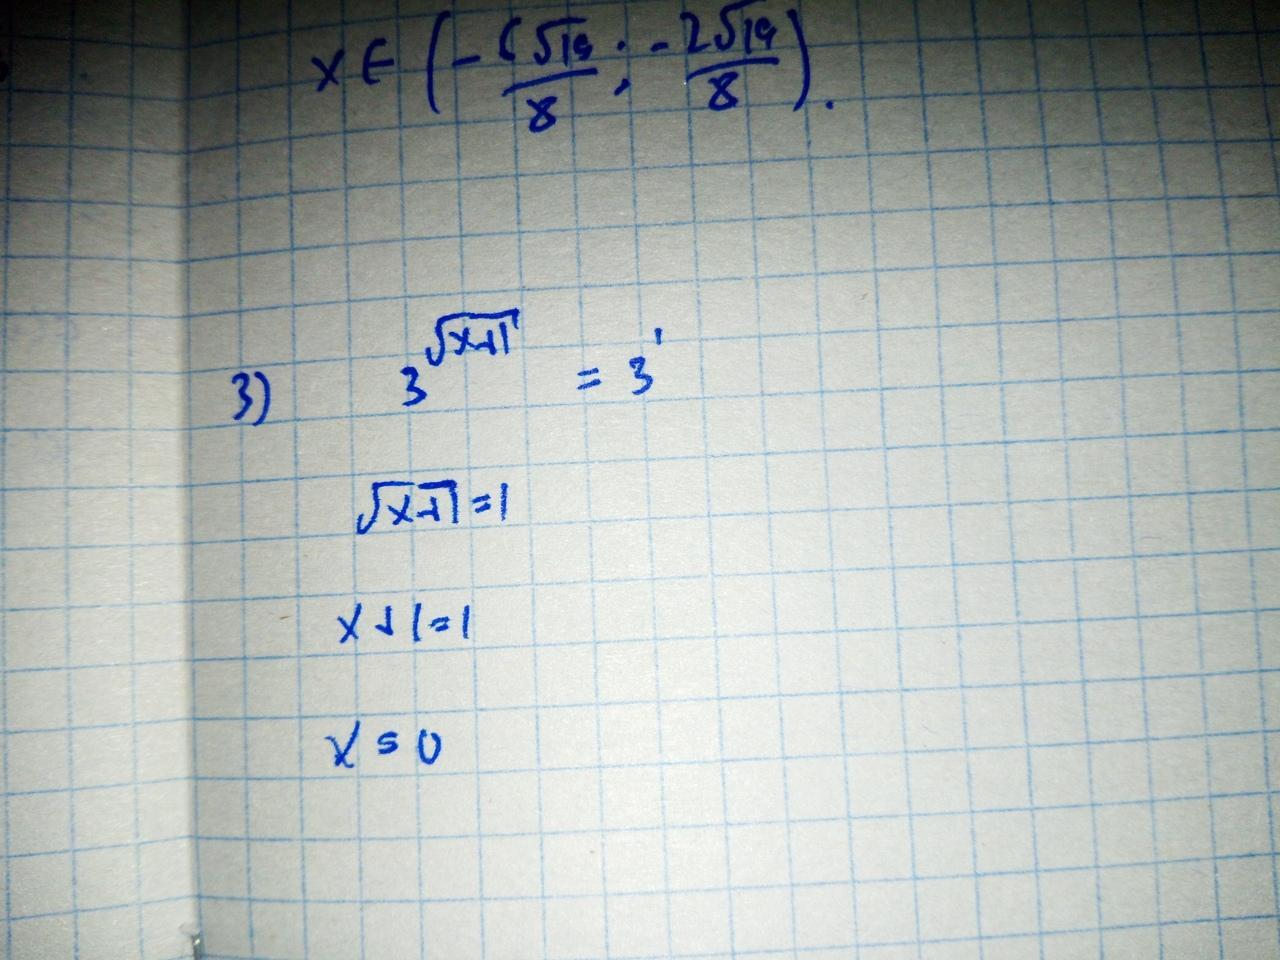 x ∈ (-6√19/8 ; -2√19/8).
3) 3^√(x+1) = 3^1
√(x+1) = 1
x + 1 = 1
x = 0